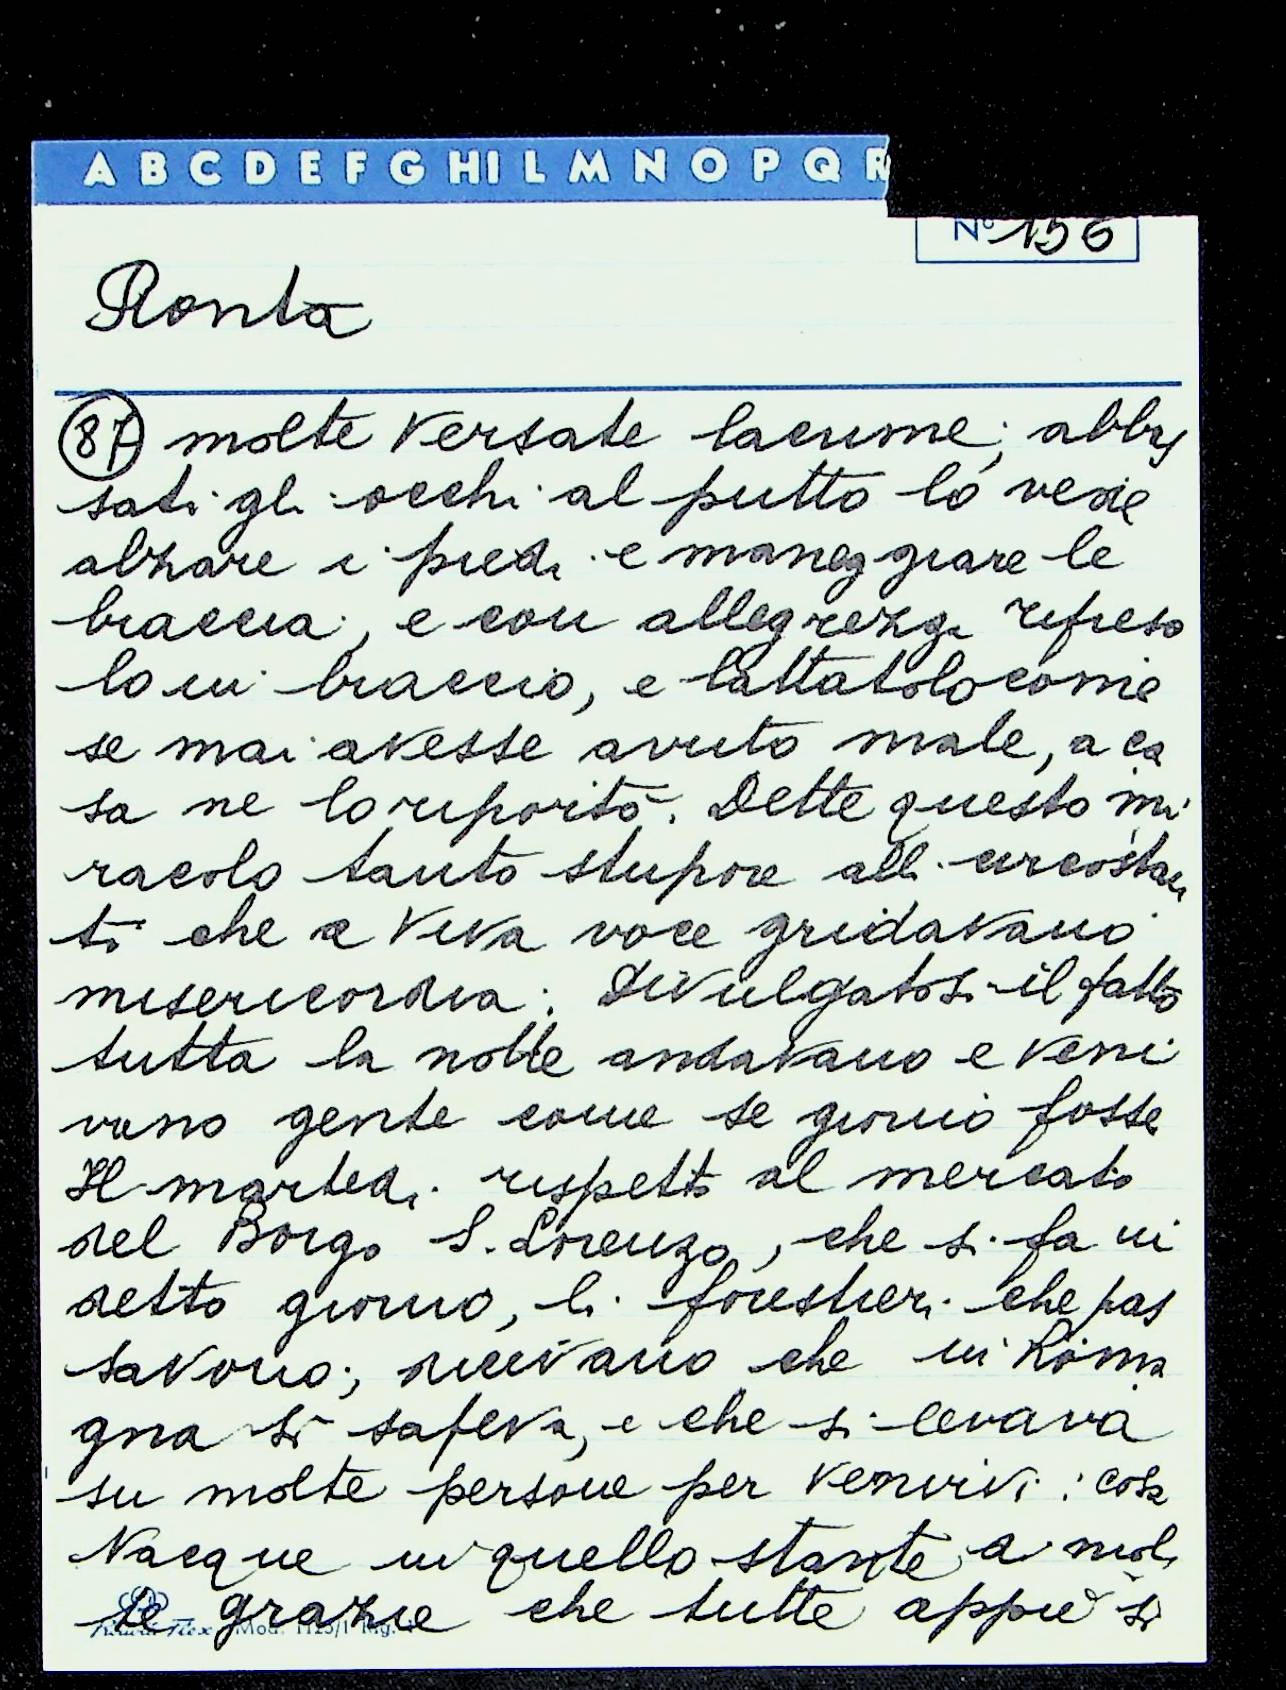 A B C D E F G HI L M N O P Q R
Nº 156
Ronta
87 molte versate lacrime; abbas
sati gli occhi al putto lo vede
alzare i piedi e maneggiare le
braccia, e con allegrezza ripreso
lo in braccio, e lattatolo come
se mai avesse avuto male, a ca
sa ne lo riportò. Dette questo mi
racolo tanto stupore alli circostan
ti che a viva voce gridavano
misericordia. Divulgatosi il fatto
tutta la notte andavano e veni
vano gente come se giorno fosse
Il martedi rispetto al mercato
del Borgo S. Lorenzo, che si fa in
detto giorno, li forestieri che pas
savono, dicevano che in Roma
gna si sapeva, e che si levava
su molte persone per venirvi: cosa
Nacque in quello stante a mol
te grazie che tutte appiè si
Mod. 1125/1 Rig.